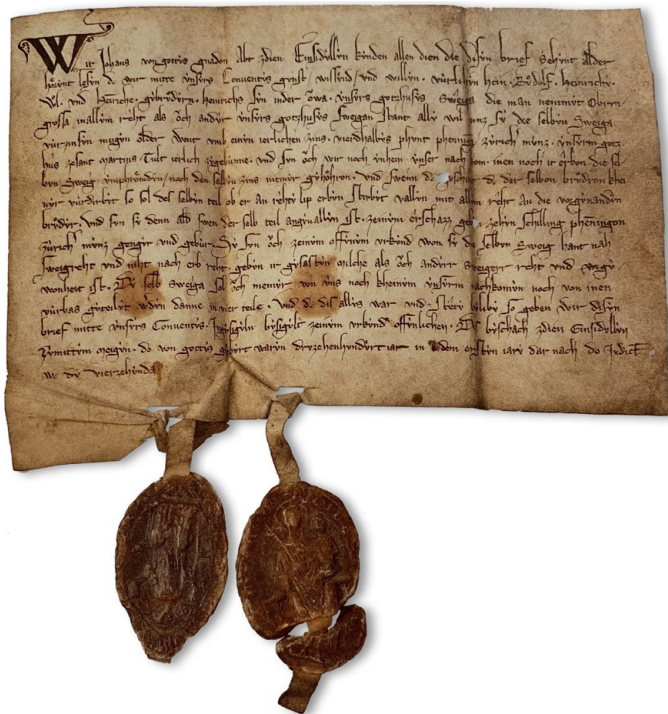 Wir Johans von gottis gnaden Abt zdien Einsidillyn kûnden allen dien die disyn brief sehynt alder
hôrynt lesyn dc wir mitte unsyrs Conventis gunst wissend und willyn virlichyn hein Rûdolf Heinrichy
Wl. und Heinriche gybrûdyrn heinrichs syn inder Owa unsyrs gotzhusys Sweiga die man nemmyt Obirn
grossa mallym reht als ôch andyr unsyrs gotzhusys sweigan stant alle wil unz sy die selbyn Sweiga
virzinsyn mugyn alder went umb einyn ierlichen zins vierdhalbys phunt phennigyn zûrich mûnz unsyrm gotz
hus zesant martys Tult ierlich zegebinne und syn ôch wir noch inhein unser nach kom inen noch ir erbon die sel
byn Sweig noch den selbyn zins nemyr gyhôhron und swenn der brûdron
nyr virdirbit so sol des selbyn teil ob er an rehte lip erbyn stirbit vallyn mit allem reht an die vorgynandyn
brûdyr und syn sy denn alb swen der selb teil angyvallyn ist zeinym erschazz gen zehyn schilling phenningon
zûrich mûnz gengyr und gebyr Sy syn ôch zeinym offynym urkund won sy die selbyn Sweig hant nah
sweigreht und niht nach erb reht gebyn ir gysalzyn milche als ôch andyrr sweiger reht und
wonheit ist Dû selb sweiga sol ôch nemyr von uns noch kheinym unsyrm nachkomyn noch von inen
vûrbas geteilyt wdyn danne in vier teile und dc dis allys war und stêt belibe so geben wir disyn
brief mitte unsyrs Conventis Insigyln bysigylt zeinym urkund offenlichen Dû byschach zdien Einsidillyn
meigyn do von gottis gybûrt waryn dryzehenhyndyrt iar in dem ersten iary dar nach do Indict
was dû vierzehynda